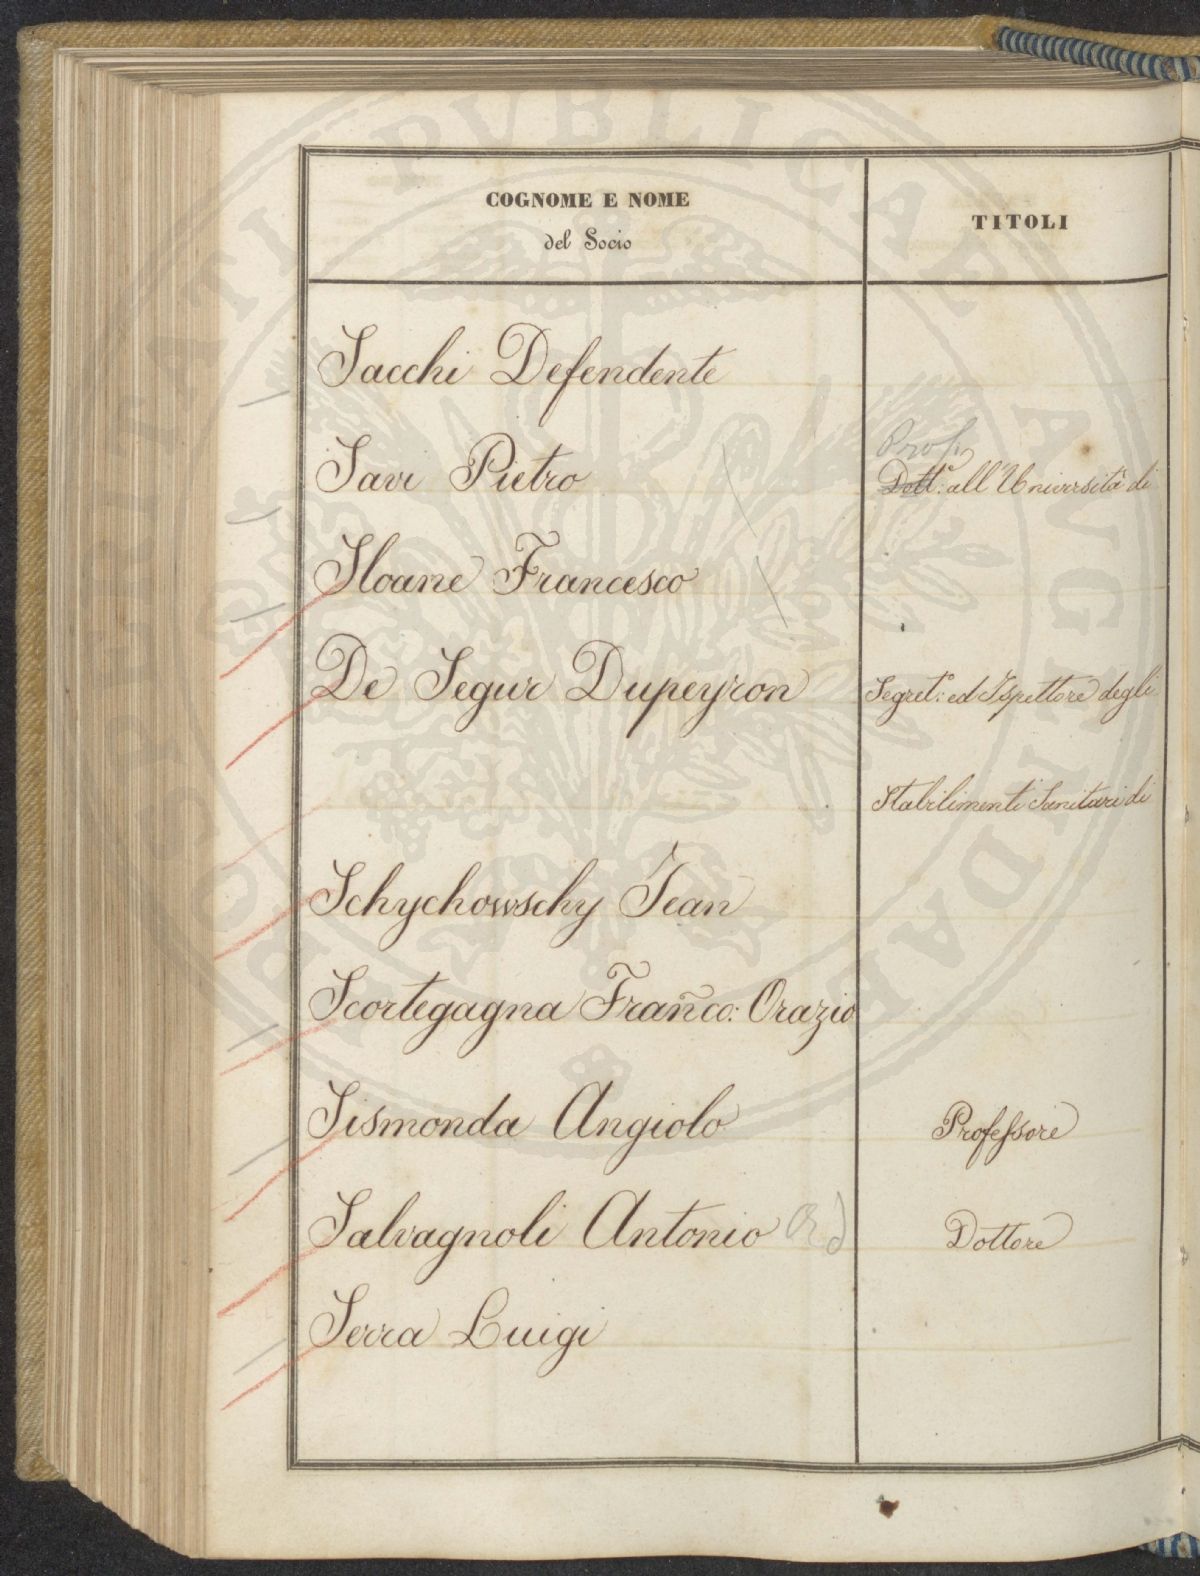 COGNOME E NOME
del Socio
TITOLI
Sacchi Defendente
Savi Pietro
Prof.
Dott.: all'Università di
Sloane Francesco
De Segur Dupeyron
Segret.: ed Ispettore degli
Stabilimenti Sanitari di
Schychowschy Jean
Scortegagna Franco: Orazio
Sismonda Angiolo
Professore
Salvagnoli Antonio Ord
Dottore
Serra Luigi
PROSPERITATI PUBLICAE AUGENDAE